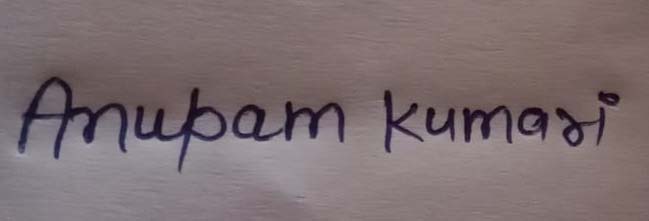 Anupam Kumari